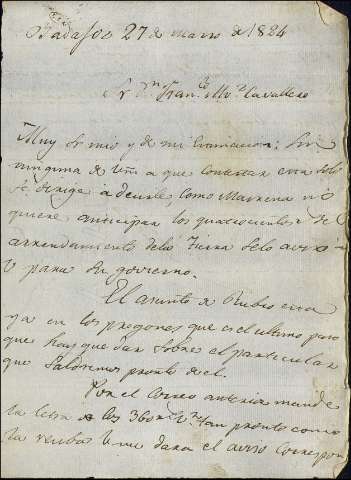 Badajoz 27 de marzo de 1824
Sr Dn Franco Mra Cavallero
Muy Sr mio y de mi estimacion: Sin
ninguna de Vm a que contestar esta solo
se dirige a decirle como Marrena no
quiere anticipar los quatrocientos del
arrendamiento dela Tierra selo aviso
para su govierno.
El asunto de Rubio esta
ya en los pregones que es el ultimo paso
que hay que dar sobre el particular
que saldremos pronto de el.
Por el correo anterior mande
la letra de los 360 rs Vn tan pronto como
la reciba Vm me dara el aviso correspon